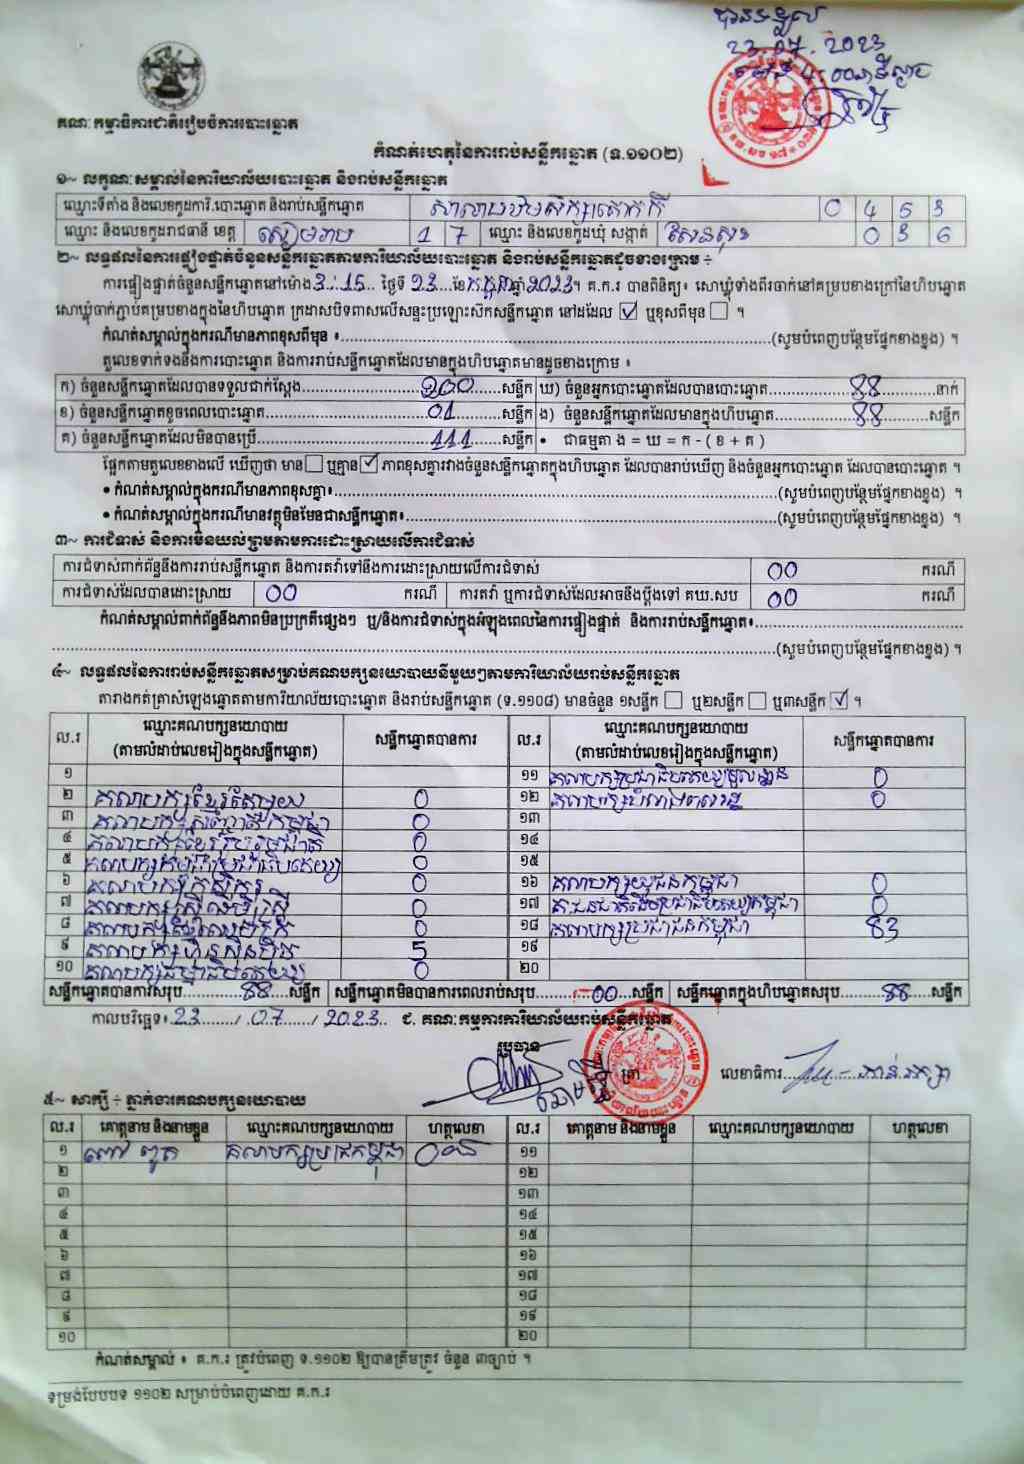 បានទទួល
23.07.2023
គណៈកម្មាធិការជាតិរៀបចំការបោះឆ្នោត
កំណត់ហេតុនៃការរាប់សន្លឹកឆ្នោត (ទ.១១០២)
១~ លក្ខណៈសម្គាល់នៃការិយាល័យបោះឆ្នោត និងរាប់សន្លឹកឆ្នោត
ឈ្មោះទីតាំង និងលេខកូដការិ.បោះឆ្នោត និងរាប់សន្លឹកឆ្នោត 0 4 5 3
ឈ្មោះ និងលេខកូដរាជធានី ខេត្ត សៀមរាប 1 7 ឈ្មោះ និងលេខកូដឃុំ សង្កាត់ សែនសុខ 0 3 6
២~ លទ្ធផលនៃការផ្ទៀងផ្ទាត់ចំនួនសន្លឹកឆ្នោតតាមការិយាល័យបោះឆ្នោត និងរាប់សន្លឹកឆ្នោតដូចខាងក្រោម ÷
ការផ្ទៀងផ្ទាត់ចំនួនសន្លឹកឆ្នោតនៅម៉ោង 3:15 ថ្ងៃទី 23 ខែ កក្កដា ឆ្នាំ 2023។ គ.ក.រ បានពិនិត្យ៖ សោឃ្មុំទាំងពីរចាក់នៅគម្របខាងក្រៅនៃហិបឆ្នោត
សោឃ្មុំចាក់ភ្ជាប់គម្របខាងក្នុងនៃហិបឆ្នោត ក្រដាសបិទពាសលើសន្ទះប្រឡោះសឹកសន្លឹកឆ្នោត នៅដដែល ☑ ឬខុសពីមុន ☐ ។
កំណត់សម្គាល់ក្នុងករណីមានភាពខុសពីមុន ៖ (សូមបំពេញបន្ថែមផ្នែកខាងខ្នង) ។
តួលេខទាក់ទងនឹងការបោះឆ្នោត និងការរាប់សន្លឹកឆ្នោតដែលមានក្នុងហិបឆ្នោតមានដូចខាងក្រោម ៖
ក) ចំនួនសន្លឹកឆ្នោតដែលបានទទួលជាក់ស្តែង 200 សន្លឹក ឃ) ចំនួនអ្នកបោះឆ្នោតដែលបានបោះឆ្នោត 88 នាក់
ខ) ចំនួនសន្លឹកឆ្នោតខូចពេលបោះឆ្នោត 01 សន្លឹក ង) ចំនួនសន្លឹកឆ្នោតដែលមានក្នុងហិបឆ្នោត 88 សន្លឹក
គ) ចំនួនសន្លឹកឆ្នោតដែលមិនបានប្រើ 111 សន្លឹក • ជាធម្មតា ង = ឃ = ក - ( ខ + គ )
ផ្អែកតាមតួលេខខាងលើ ឃើញថា មាន ☐ ឬគ្មាន ☑ ភាពខុសគ្នារវាងចំនួនសន្លឹកឆ្នោតក្នុងហិបឆ្នោត ដែលបានរាប់ឃើញ និងចំនួនអ្នកបោះឆ្នោត ដែលបានបោះឆ្នោត ។
• កំណត់សម្គាល់ក្នុងករណីមានភាពខុសគ្នា៖ (សូមបំពេញបន្ថែមផ្នែកខាងខ្នង) ។
• កំណត់សម្គាល់ក្នុងករណីមានវត្ថុមិនមែនជាសន្លឹកឆ្នោត៖ (សូមបំពេញបន្ថែមផ្នែកខាងខ្នង) ។
៣~ ការជំទាស់ និងការមិនយល់ព្រមតាមការដោះស្រាយលើការជំទាស់
ការជំទាស់ពាក់ព័ន្ធនឹងការរាប់សន្លឹកឆ្នោត និងការតវ៉ាទៅនឹងការដោះស្រាយលើការជំទាស់ 00 ករណី
ការជំទាស់ដែលបានដោះស្រាយ 00 ករណី ការតវ៉ា ឬការជំទាស់ដែលអាចនឹងប្តឹងទៅ គឃ.សប 00 ករណី
កំណត់សម្គាល់ពាក់ព័ន្ធនឹងភាពមិនប្រក្រតីផ្សេងៗ ឬ/និងការជំទាស់ក្នុងអំឡុងពេលនៃការផ្ទៀងផ្ទាត់ និងការរាប់សន្លឹកឆ្នោត៖
(សូមបំពេញបន្ថែមផ្នែកខាងខ្នង) ។
៤~ លទ្ធផលនៃការរាប់សន្លឹកឆ្នោតសម្រាប់គណបក្សនយោបាយនីមួយៗតាមការិយាល័យរាប់សន្លឹកឆ្នោត
តារាងកត់ត្រាសំឡេងឆ្នោតតាមការិយាល័យបោះឆ្នោត និងរាប់សន្លឹកឆ្នោត (ទ.១១០៨) មានចំនួន ១សន្លឹក ☐ ឬ២សន្លឹក ☐ ឬ៣សន្លឹក ☑ ។
ល.រ ឈ្មោះគណបក្សនយោបាយ (តាមលំដាប់លេខរៀងក្នុងសន្លឹកឆ្នោត) សន្លឹកឆ្នោតបានការ ល.រ ឈ្មោះគណបក្សនយោបាយ (តាមលំដាប់លេខរៀងក្នុងសន្លឹកឆ្នោត) សន្លឹកឆ្នោតបានការ
១ ១១ 0
២ គណបក្សខ្មែរតែមួយ 0 ១២ 0
៣ 0 ១៣
៤ គណបក្សខ្មែររួបរួមជាតិ 0 ១៤
៥ 0 ១៥
៦ គណបក្សកសិករ 0 ១៦ គណបក្សយុវជនកម្ពុជា 0
៧ 0 ១៧ 0
៨ 0 ១៨ គណបក្សប្រជាជនកម្ពុជា 83
៩ គណបក្សហ៊្វុនស៊ិនប៉ិច 5 ១៩
១០ គណបក្សធម្មាធិបតេយ្យ 0 ២០
សន្លឹកឆ្នោតបានការសរុប 88 សន្លឹក សន្លឹកឆ្នោតមិនបានការពេលរាប់សរុប 00 សន្លឹក សន្លឹកឆ្នោតក្នុងហិបឆ្នោតសរុប 88 សន្លឹក
កាលបរិច្ឆេទ៖ 23 / 07 / 2023 ជ. គណៈកម្មការការិយាល័យរាប់សន្លឹកឆ្នោត
ប្រធាន
ត្រា លេខាធិការ
៥~ សាក្សី ÷ ភ្នាក់ងារគណបក្សនយោបាយ
ល.រ គោត្តនាម និងនាមខ្លួន ឈ្មោះគណបក្សនយោបាយ ហត្ថលេខា ល.រ គោត្តនាម និងនាមខ្លួន ឈ្មោះគណបក្សនយោបាយ ហត្ថលេខា
១ ១១
២ ១២
៣ ១៣
៤ ១៤
៥ ១៥
៦ ១៦
៧ ១៧
៨ ១៨
៩ ១៩
១០ ២០
កំណត់សម្គាល់ ៖ គ.ក.រ ត្រូវបំពេញ ទ.១១០២ ឱ្យបានត្រឹមត្រូវ ចំនួន ៣ច្បាប់ ។
ទម្រង់បែបបទ ១១០២ សម្រាប់បំពេញដោយ គ.ក.រ